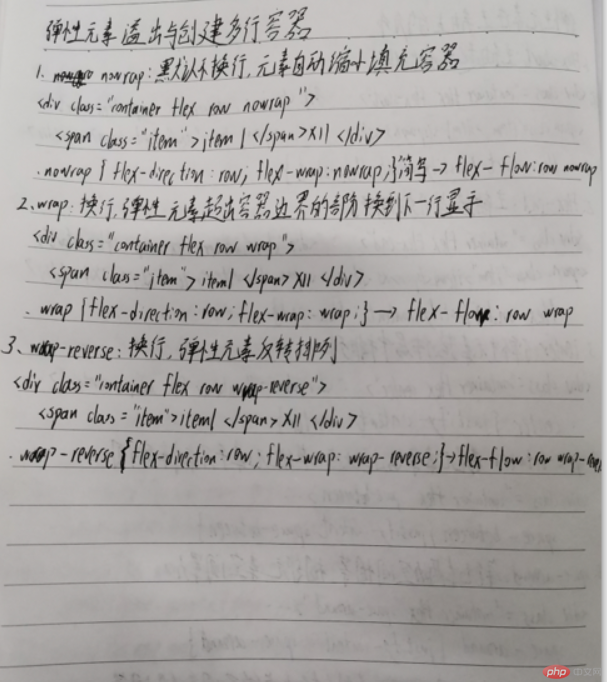 弹性元素溢出与创建多行容器
1. nowrap: 默认不换行,元素自动缩小填充容器
<div class="container flex row nowrap">
<span class="item">item1</span>x11 </div>
.nowrap { flex-direction: row; flex-wrap: nowrap;}简写→ flex-flow: row nowrap
2、wrap: 换行,弹性元素超出容器边界的部防换到下一行显于
<div class="container flex row wrap">
<span class="item">item1 </span>x11 </div>
. wrap {flex-direction: row; flex-wrap: wrap;} → flex-flow: row wrap
3、wrap-reverse: 换行,弹性元素反转排列
<div class="container flex row wrap-reverse">
<span class="item">item1 </span>x11 </div>
. wrap-reverse {flex-direction: row; flex-wrap: wrap-reverse;}→flex-flow: row wrap-reve
php 中文网